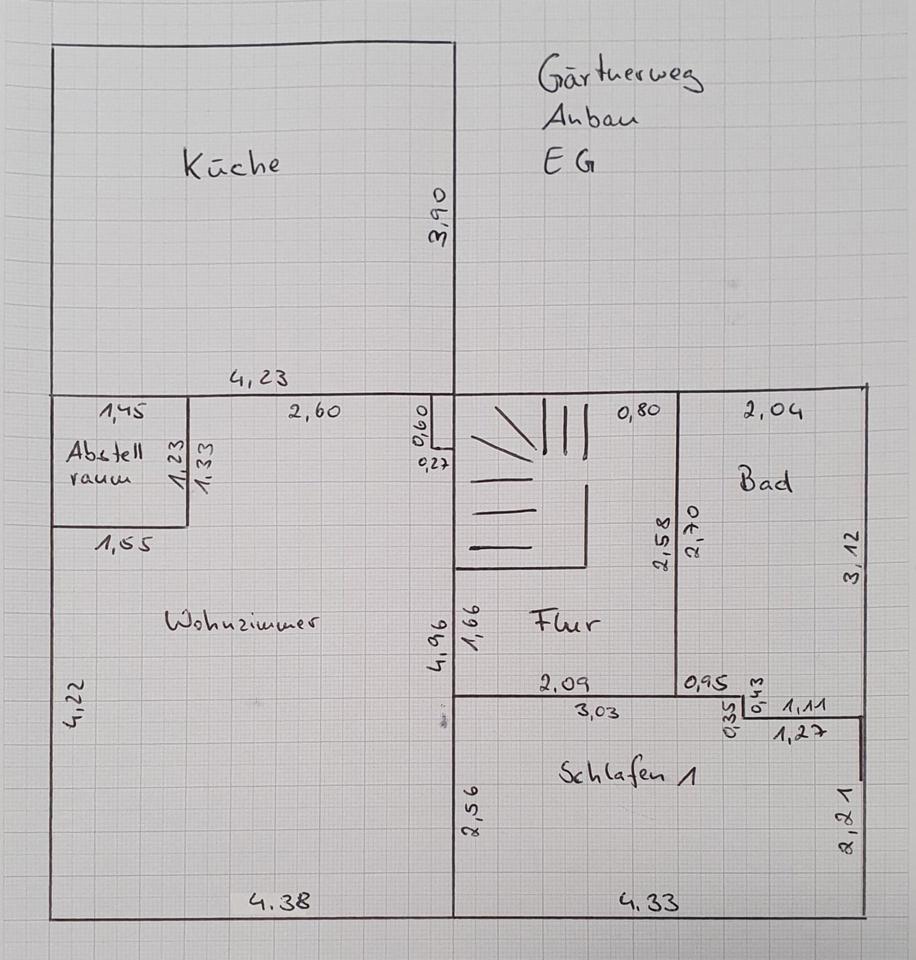 Gärtnerweg
Anbau
EG
Küche
3,90
4,23
1,45
2,60
0,60
0,80
2,04
Abstell
raum
1,23
1,33
0,27
Bad
1,55
2,58
2,70
3,12
Wohnzimmer
4,96
1,66
Flur
4,22
2,09
0,95
0,43
3,03
0,35
1,11
1,27
Schlafen 1
2,56
2,21
4.38
4.33